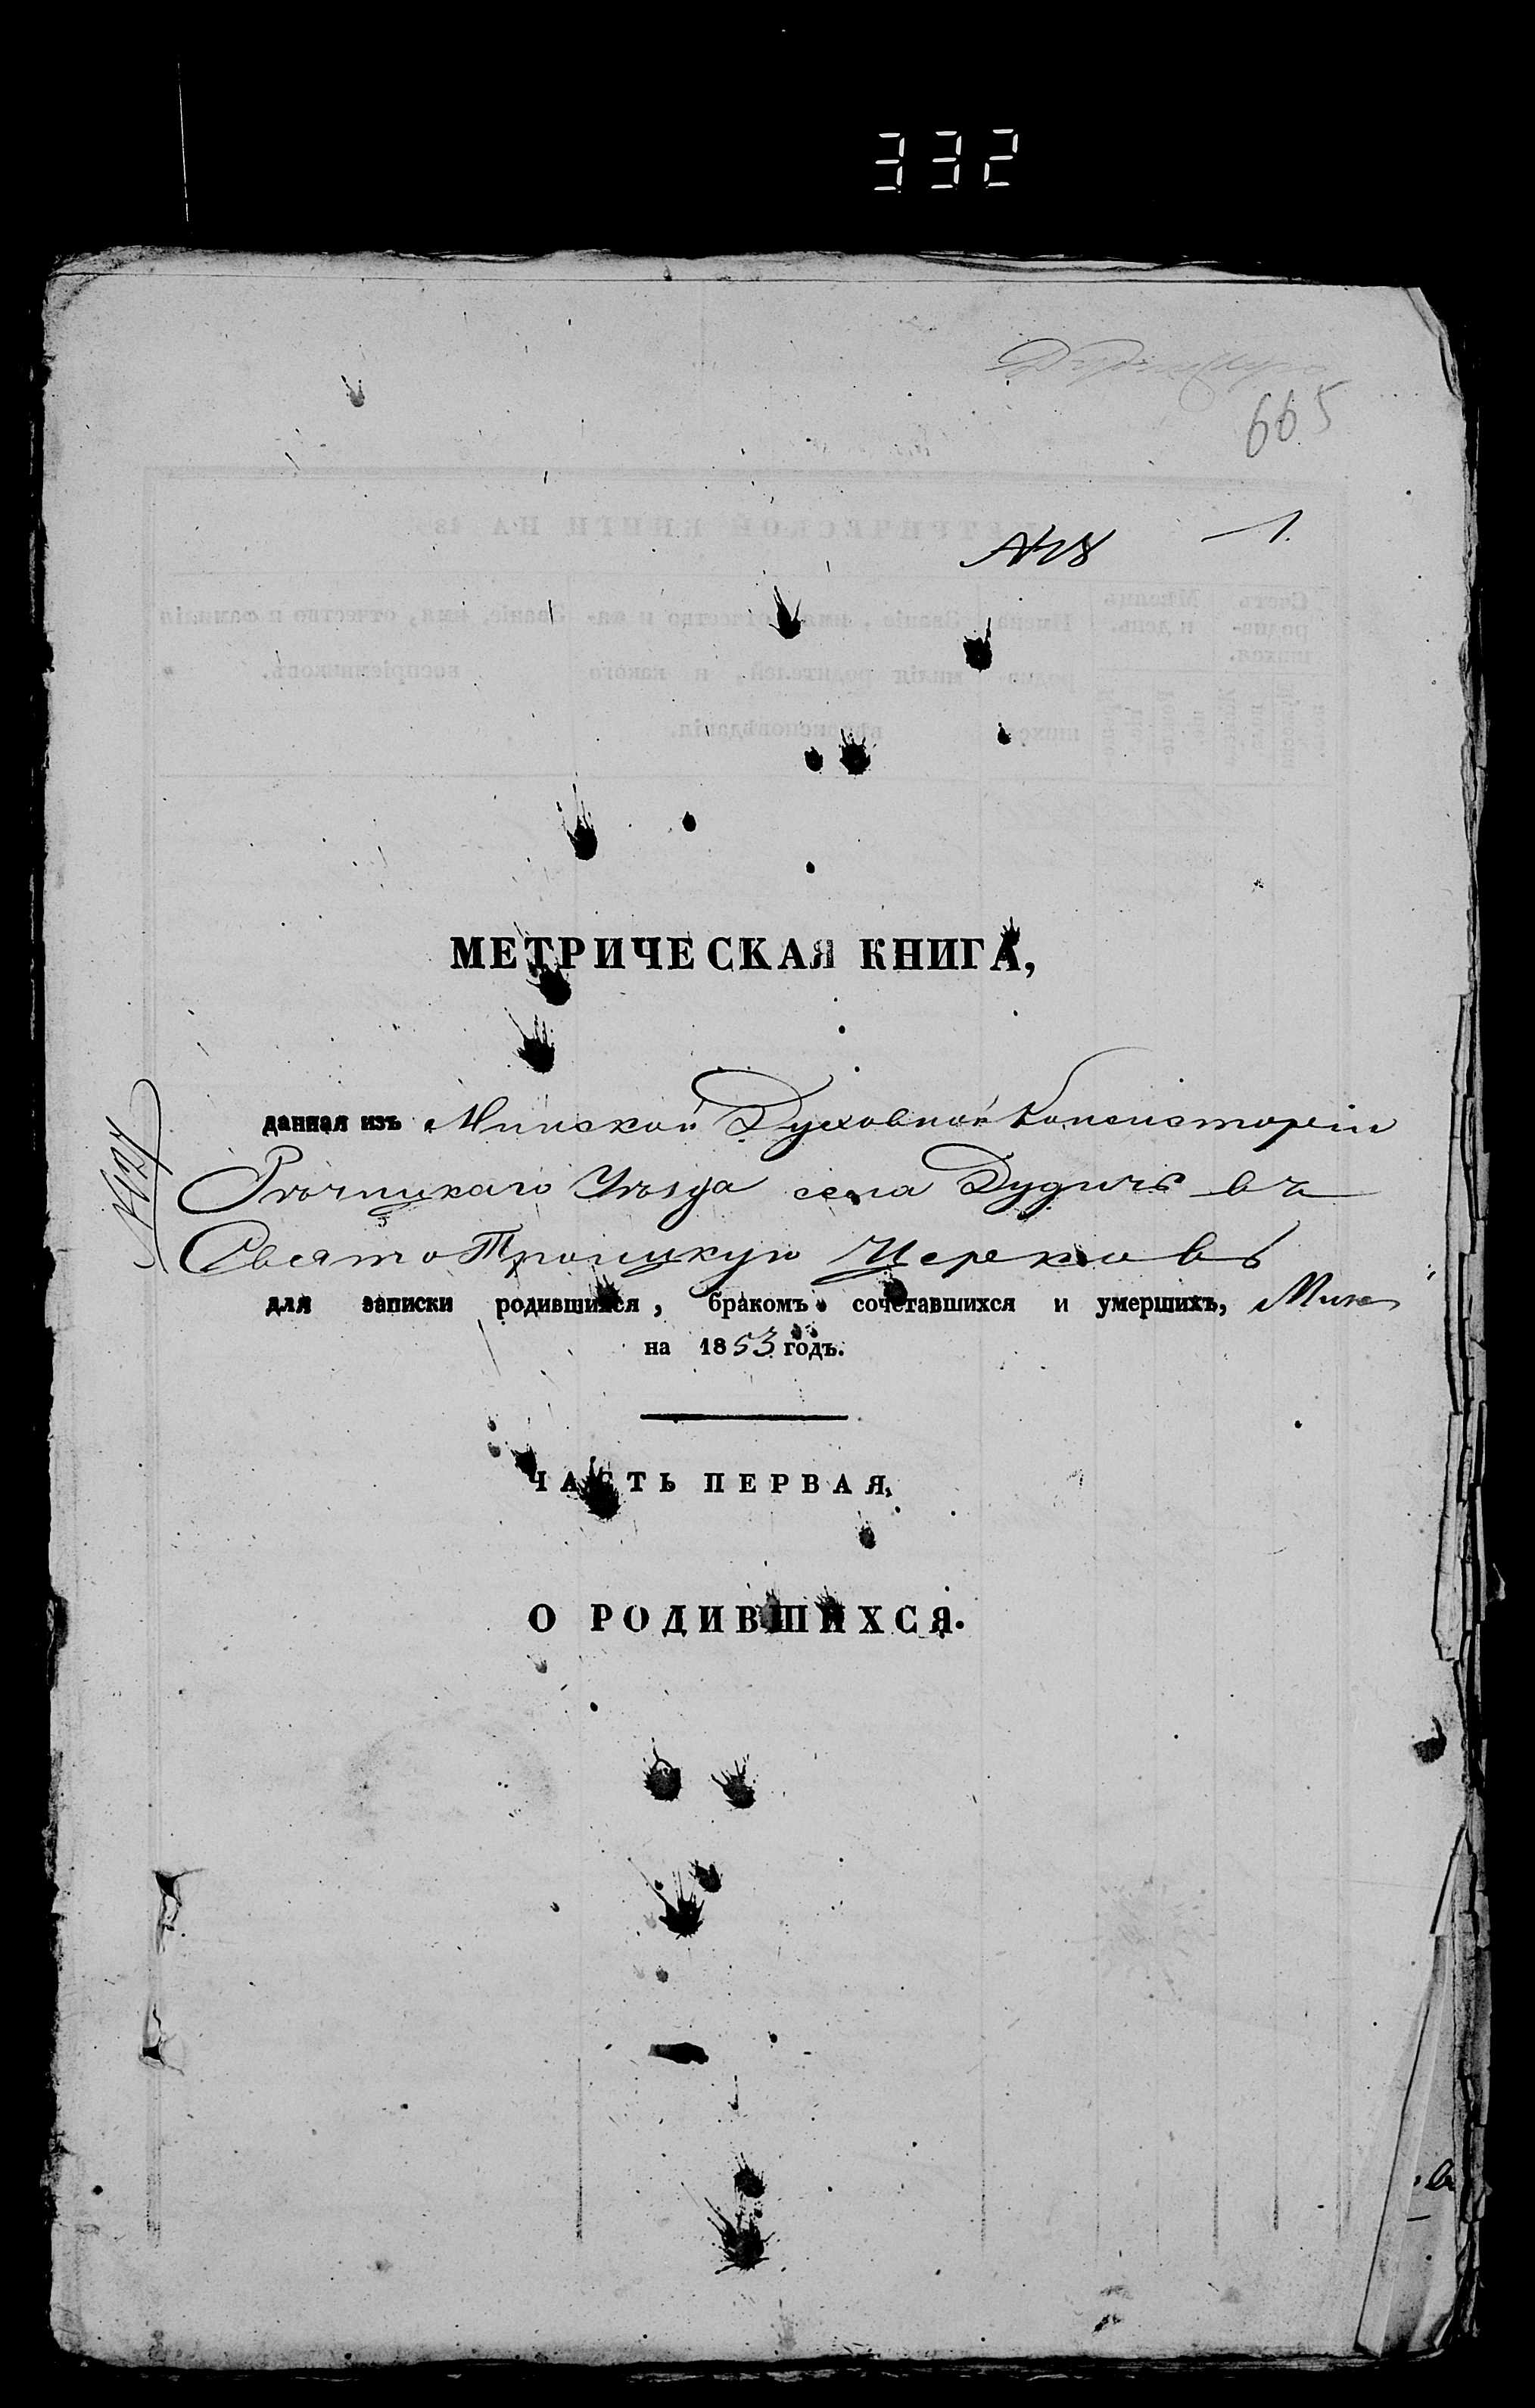 332
665
№ 18 1.
МЕТРИЧЕСКАЯ КНИГА,
данная изъ Минской Духовной Консисторіи
Рѣчицкаго Уѣзда села Дудичь въ
СвятоТроицкую Церковь
для записки родившихся, бракомъ сочетавшихся и умершихъ,
на 1853 годъ.
ЧАСТЬ ПЕРВАЯ,
О РОДИВШИХСЯ.